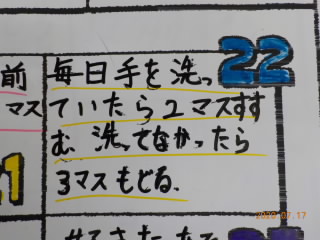 22
毎日手を洗っ
ていたら2マスすす
む 洗ってなかったら
3マスもどる.
前
マス
1
2020 07 17